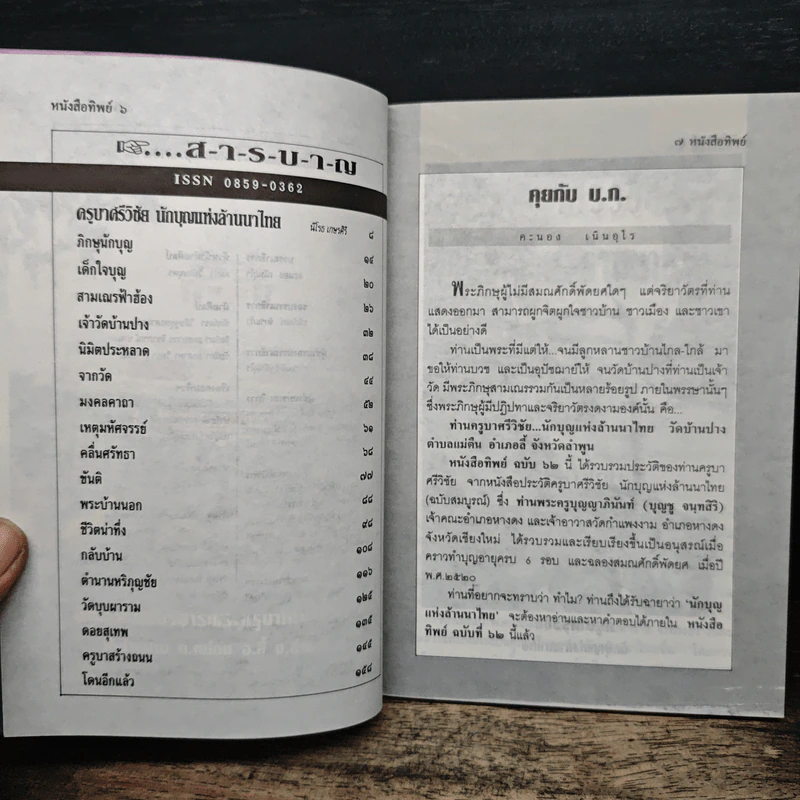 หนังสือทิพย์ ๖
....ส-า-ร-บ-า-ญ
ISSN 0859-0362
ครูบาศรีวิชัย นักบุญแห่งล้านนาไทย นิโรธ เกษรศิริ ๘
ภิกษุนักบุญ ๑๔
เด็กใจบุญ ๒๐
สามเณรฟ้าฮ้อง ๒๖
เจ้าวัดบ้านปาง ๓๒
นิมิตประหลาด ๓๘
จากวัด ๔๔
มงคลคาถา ๕๒
เหตุมหัศจรรย์ ๖๑
คลื่นศรัทธา ๖๘
ขันติ ๗๗
พระบ้านนอก ๘๘
ชีวิตน่าทึ่ง ๙๘
กลับบ้าน ๑๐๘
ตำนานหริภุญชัย ๑๑๖
วัดบุบผาราม ๑๒๕
ดอยสุเทพ ๑๓๕
ครูบาสร้างถนน ๑๔๕
โดนอีกแล้ว ๑๕๘
๗ หนังสือทิพย์
คุยกับ บ.ก.
คะนอง เนินอุไร
พระภิกษุผู้ไม่มีสมณศักดิ์พัดยศใดๆ แต่จริยาวัตรที่ท่าน
แสดงออกมา สามารถผูกจิตผูกใจชาวบ้าน ชาวเมือง และชาวเขา
ได้เป็นอย่างดี
ท่านเป็นพระที่มีแต่ให้...จนมีลูกหลานชาวบ้านไกล-ใกล้ มา
ขอให้ท่านบวช และเป็นอุปัชฌาย์ให้ จนวัดบ้านปางที่ท่านเป็นเจ้า
วัด มีพระภิกษุสามเณรรวมกันเป็นหลายร้อยรูป ภายในพรรษานั้นๆ
ซึ่งพระภิกษุผู้มีปฏิปทาและจริยาวัตรงดงามองค์นั้น คือ...
ท่านครูบาศรีวิชัย...นักบุญแห่งล้านนาไทย วัดบ้านปาง
ตำบลแม่ตืน อำเภอลี้ จังหวัดลำพูน
หนังสือทิพย์ ฉบับ ๖๒ นี้ ได้รวบรวมประวัติของท่านครูบา
ศรีวิชัย จากหนังสือประวัติครูบาศรีวิชัย นักบุญแห่งล้านนาไทย
(ฉบับสมบูรณ์) ซึ่ง ท่านพระครูบุญญาภินันท์ (บุญชู จนฺทสิริ)
เจ้าคณะอำเภอหางดง และเจ้าอาวาสวัดกำแพงงาม อำเภอหางดง
จังหวัดเชียงใหม่ ได้รวบรวมและเรียบเรียงขึ้นเป็นอนุสรณ์เมื่อ
คราวทำบุญอายุครบ ๖ รอบ และฉลองสมณศักดิ์พัดยศ เมื่อปี
พ.ศ.๒๕๒๐
ท่านที่อยากจะทราบว่า ทำไม? ท่านถึงได้รับฉายาว่า 'นักบุญ
แห่งล้านนาไทย' จะต้องหาอ่านและหาคำตอบได้ภายใน หนังสือ
ทิพย์ ฉบับที่ ๖๒ นี้แล้ว